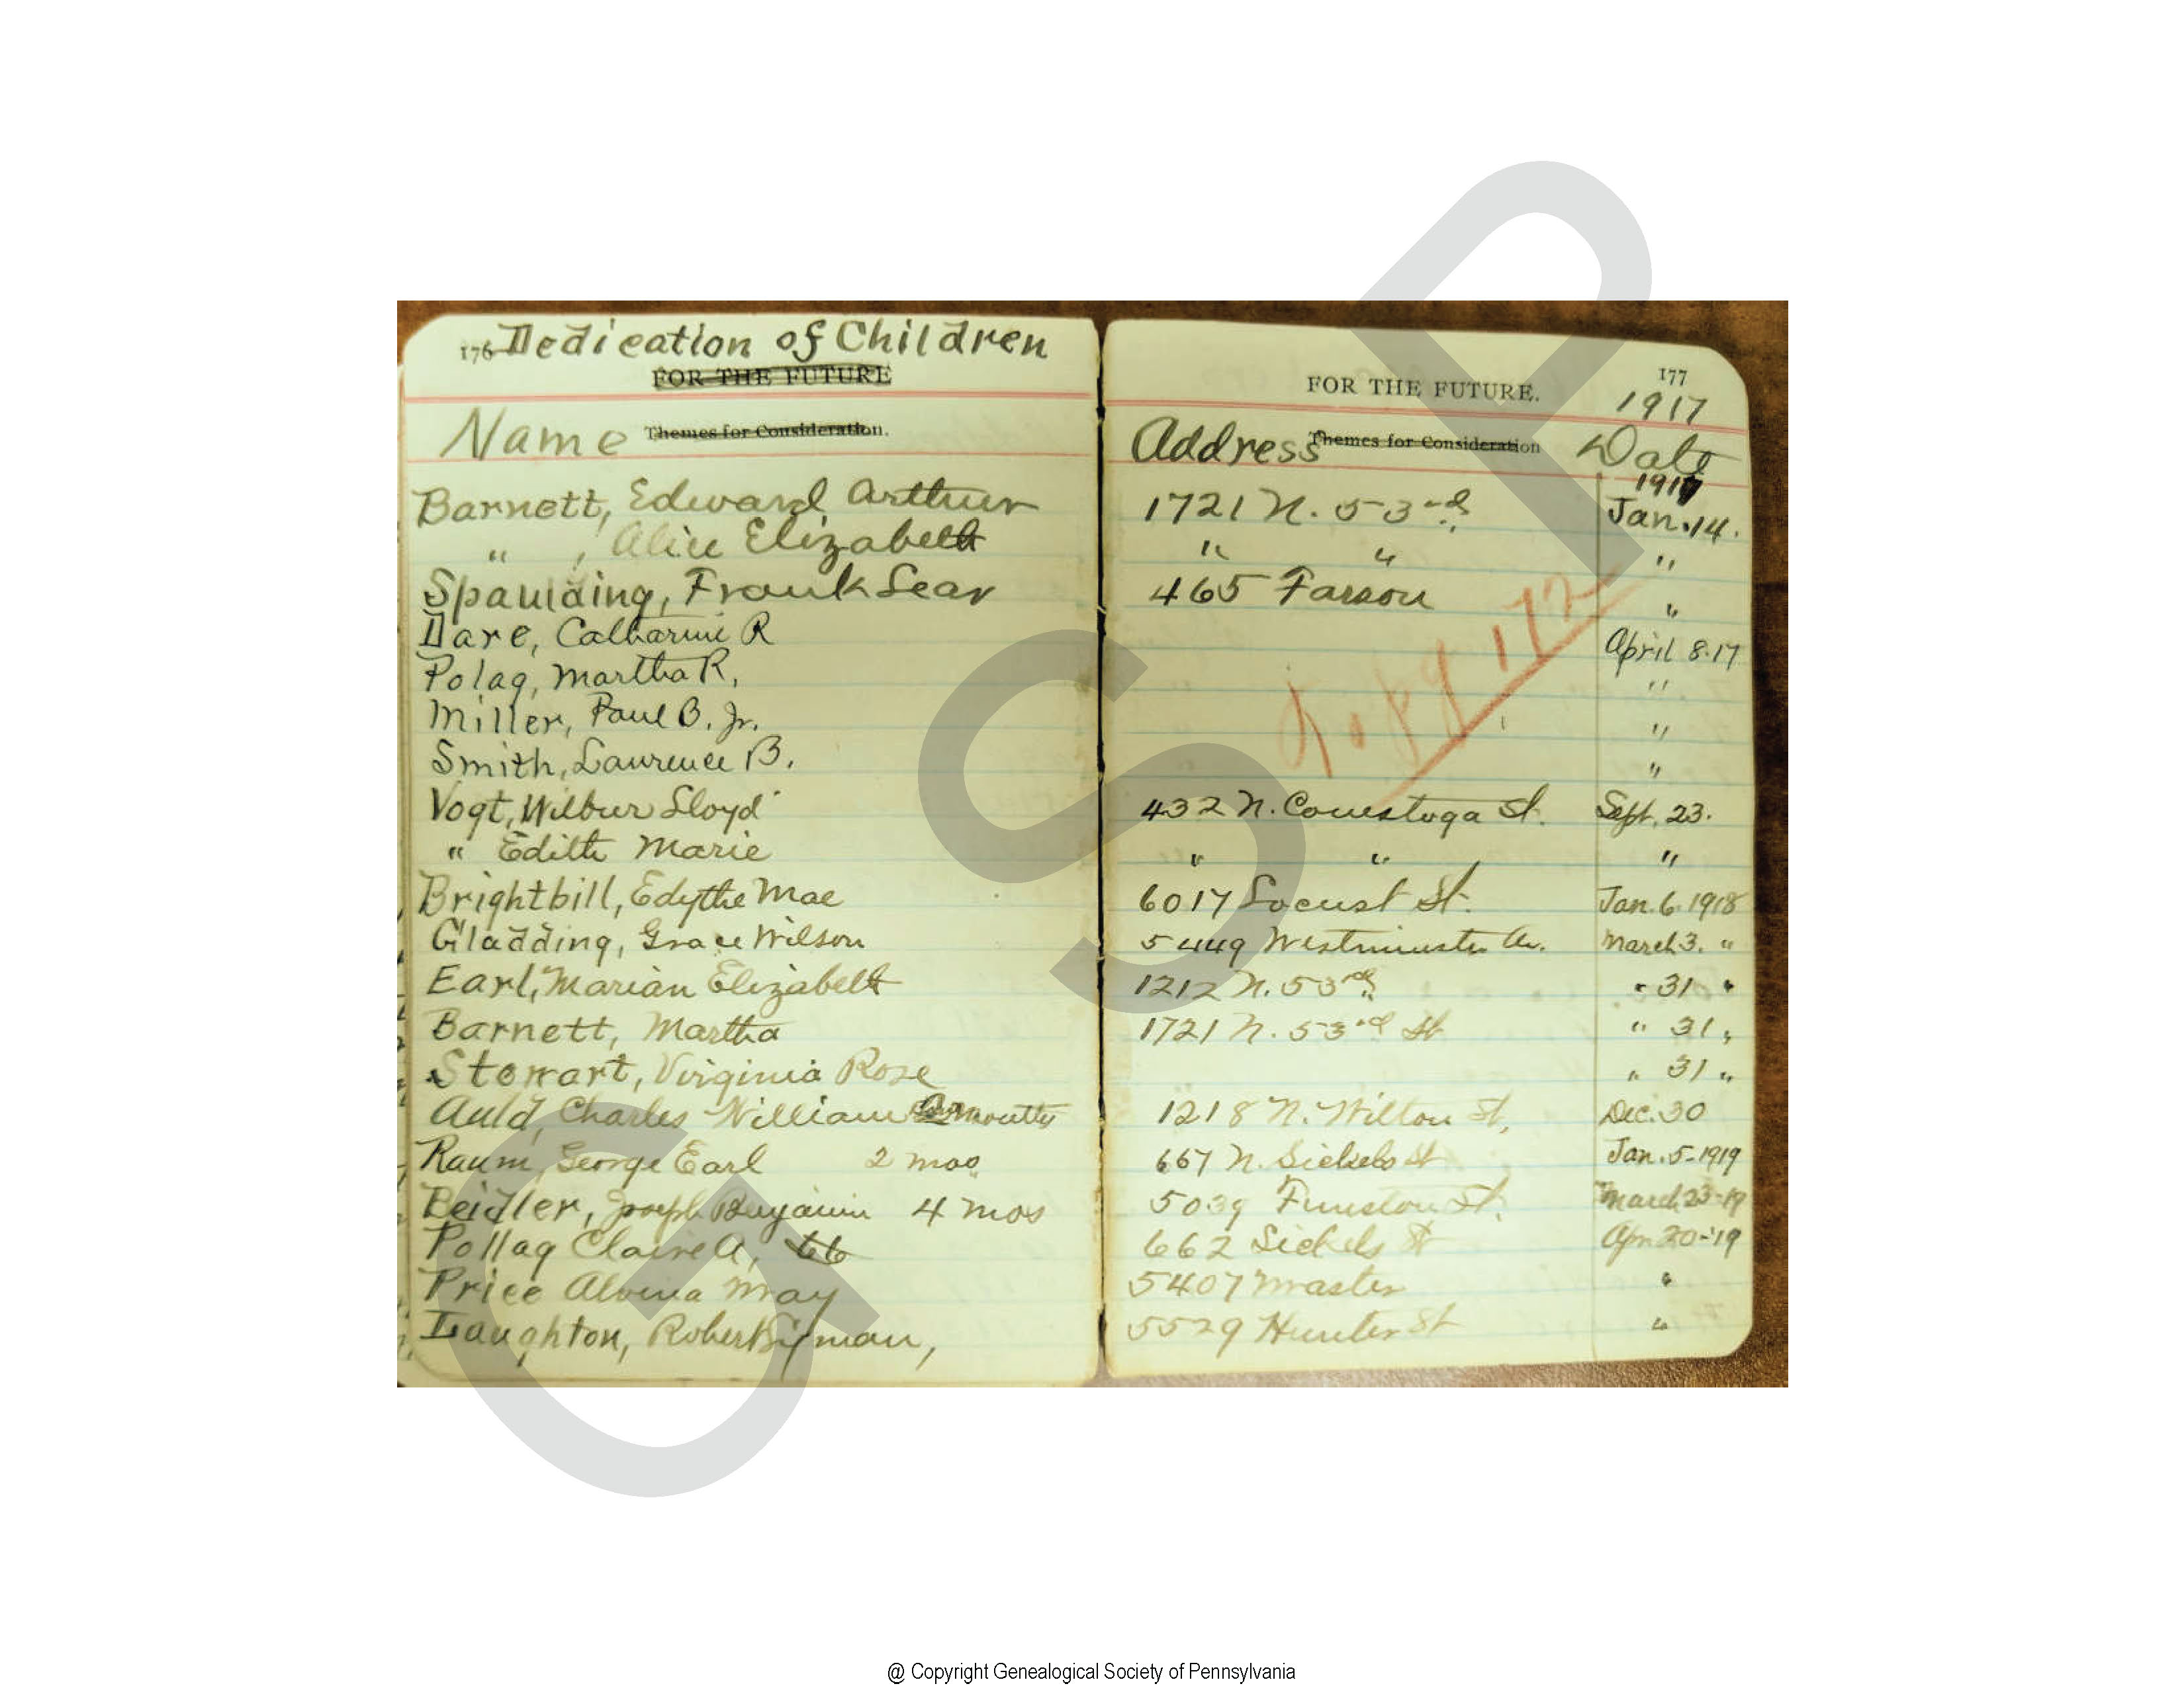 176 Dedication of Children
FOR THE FUTURE
Name Themes for Consideration.
Barnett, Edward Arthur
" , Alice Elizabeth
Spaulding, Frank Lear
Dare, Catharine R
Polag, Martha R,
Miller, Paul B. Jr.
Smith, Laurence B.
Vogt, Wilbur Lloyd
" Edith Marie
Brightbill, Edythe Mae
Gladding, Grace Wilson
Earl, Marian Elizabeth
Barnett, Martha
Stewart, Virginia Rose
Auld, Charles William months
Raum, George Earl 2 mos
Beidler, Joseph Benjamin 4 mos
Pollag Claire A,
Price Alvina May
Laughton, Robert
177
FOR THE FUTURE.
1917
Address Themes for Consideration Date
1917
1721 N. 53rd Jan. 14.
" " "
465 Farson "
April 8. 17
"
"
"
172
432 N. Conestoga St. Sept. 23.
" " "
6017 Locust St. Jan. 6. 1918
5449 Westminster Av. March 3. "
1212 N. 53rd " 31 "
1721 N. 53rd St " 31 "
" 31 "
1218 N. Wilton St, Dec. 30
667 N. Sickels St Jan. 5-1919
5039 Funston St. March 23-19
662 Sickels St Apr 20-'19
5407 Master "
5529 Hunter St "
GSP
@ Copyright Genealogical Society of Pennsylvania